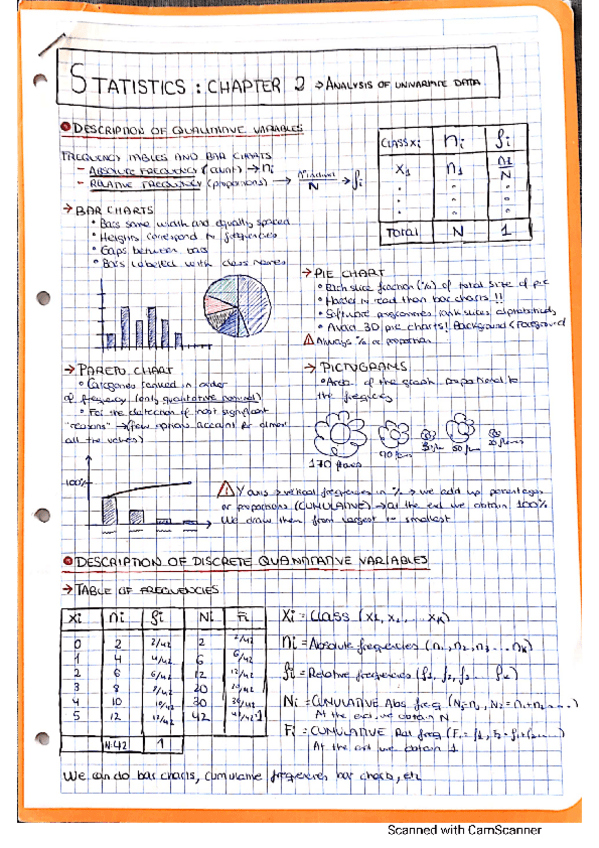 STATISTICS : CHAPTER 2 → ANALYSIS OF UNIVARIATE DATA
DESCRIPTION OF QUALITATIVE VARIABLES
FREQUENCY TABLES AND BAR CHARTS
- ABSOLUTE FREQUENCY (count) → ni
- RELATIVE FREQUENCY (proportions) → N → fi
CLASS Xi ni fi
X1 n1 n1/N
Total N 1
→ BAR CHARTS
• Bars same width and equally spaced
• Heights correspond to frequencies
• Gaps between bars
• Bars labeled with class names
→ PIE CHART
• Each slice fraction (%) of total size of pie
• Harder to read than bar charts !!
• Software programmes rank slices alphabetically
• Avoid 3D pie charts! Background < Foreground
Always % or proportion
→ PARETO CHART
• Categories ranked in order
of frequency (only qualitative nominal)
• For the detection of most significant
"reasons" → (few options account for almost
all the values)
→ PICTOGRAMS
• Area of the graph proportional to
the freqncies
170 flowers
100%
Y axis → vertical frequencies in % → we add up percentages
or proportions (CUMULATIVE) → at the end we obtain 100%
We draw them from largest to smallest
DESCRIPTION OF DISCRETE QUANTITATIVE VARIABLES
→ TABLE OF FREQUENCIES
Xi ni fi Ni Fi
0 2 2/42 2 2/42
1 4 4/42 6 6/42
2 6 6/42 12 12/42
3 8 8/42 20 20/42
4 10 10/42 30 30/42
5 12 12/42 42 42/42=1
N=42 1
Xi = CLASS (X1, X2, ... XK)
ni = Absolute frequencies (n1, n2, n3 ... nK)
fi = Relative frequencies (f1, f2, f3 ... fK)
Ni = CUMULATIVE Abs. freq (N1=n1, N2=n1+n2....)
At the end we obtain N
Fi = CUMULATIVE Rel freq (F1=f1, F2=f1+f2.....)
At the end we obtain 1
We can do bar charts, cumulative frequencies bar charts, etc
Scanned with CamScanner